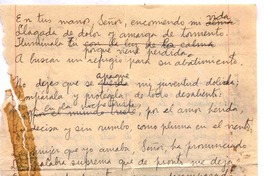 vida
En tus manos, Señor, encomiendo mi alma:
Llagada de dolor y amarga de tormento.
Ilumínala tu con la luz de la calma
porque viene perdida
A buscar un refugio para su abatimiento.
apague
No dejes que se mi juventud
y protégela, de todo desaliento:
por el mundo por el amor herida,
y sin rumbo, como pluma en el viento,
mujer que yo amaba, Señor, ha pronunciado
palabra suprema que de pronto me deja